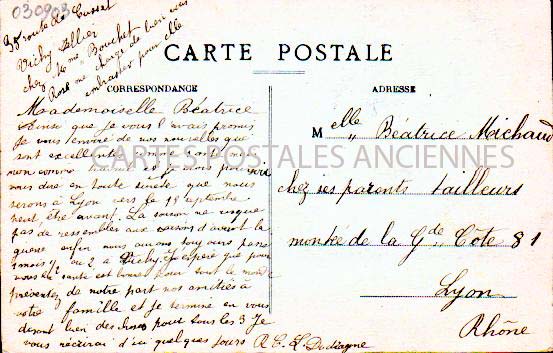 030903
38 route de Cusset
Vichy Allier
chez Mme Bouchet
Rose me charge de bien vous
embrasser pour elle
CARTE POSTALE
CORRESPONDANCE
ADRESSE
Mademoiselle Béatrice
Ainsi que je vous l'avais promis
Je vous envoie de nos nouvelles qui
sont excellentes comme santé
mon homme et je puis
vous dire en toute sureté que nous
serons à Lyon vers le 15 septembre
peut être avant. La saison ne risque
pas de ressembler aux saisons d'avant la
guerre enfin nous aurons toujours passé
1 mois ½ ou 2 à Vichy. J'espère que pour
vous la santé est bonne pour tout le monde
présentez de notre part nos amitiés à
votre famille et je termine en vous
disant bien des choses pour tous les 3 Je
vous récrirai d'ici quelques jours
Melle Béatrice Michaud
chez ses parents tailleurs
montée de la Gde Côte 81
Lyon
Rhône
CARTES POSTALES ANCIENNES